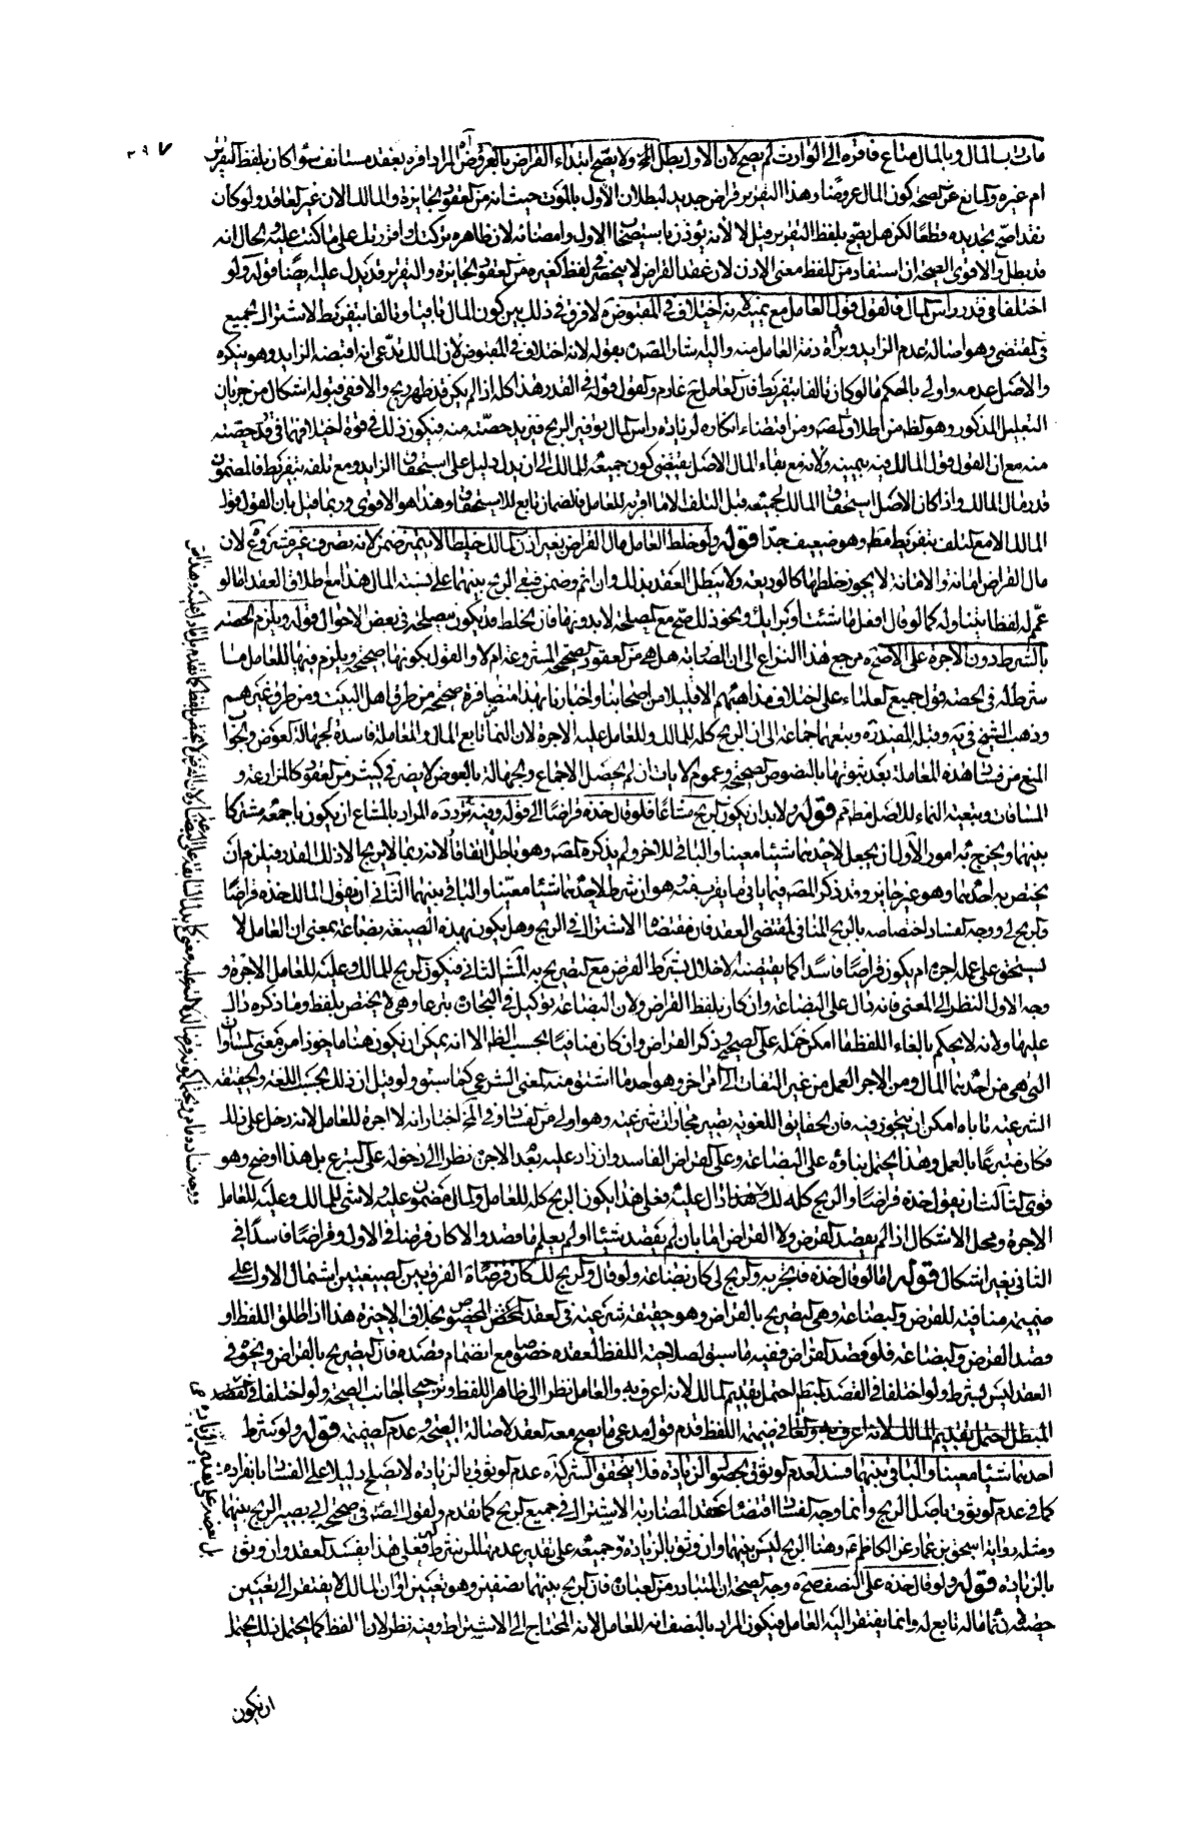 ٣٩٧
مات رب المال وبالمال متاع فاقره الوارث لم يصح لان الاول بطل الخ ولا يصح ابتداء القراض بالعروض المراد اقره بعقد مستانف سواء كان بلفظ التقرير
ام غيره والمانع عن الصحة كون المال عروضا وهذا التقرير قراض جديد لبطلان الاول بالموت حيث انه من العقود الجايزة والمالك الان غير العاقد ولو كان
نقدا صح تجديده قطعا لكن هل يصح بلفظ التقرير قيل لا لانه يؤذن باستصحاب الاول وامضائه لان ظاهره تركتك واقررتك على ما كنت عليه والحال انه
قد بطل والاقوى الصحة ان استفاد من اللفظ معنى الاذن لان عقد القراض لا ينحصر في لفظ كغيره من العقود الجايزة والتقرير قد يدل عليه ايضا قوله ولو
اختلفا في قدر راس المال فالقول قول العامل مع يمينه لانه اختلاف في المقبوض لا فرق في ذلك بين كون المال باقيا وتالفا بتفريط لاشتراك الجميع
في المقتضى وهو اصالة عدم الزايد وبراءة ذمة العامل منه واليه اشار المص بقوله لانه اختلاف في المقبوض لان المالك يدعي انه اقبضه الزايد وهو ينكره
والاصل عدمه واولى بالحكم ما لو كان تالفا بتفريط فان العامل ح غارم والقول قوله في القدر هذا كله اذا لم يكن قد ظهر ربح والا ففي قبوله اشكال من جريان
التعليل المذكور وهو الظ من اطلاق المص ومن اقتضاء انكاره لزيادة راس المال توفير الربح فتزيد حصته منه فيكون ذلك في قوة اختلافهما في قدر حصته
منه مع ان القول قول المالك فيه بيمينه ولانه مع بقاء المال الاصل يقتضي كون جميعه للمالك الى ان يدل دليل على استحقاق الزايد ومع تلفه بتفريط فالمضمون
قدر مال المالك واذا كان الاصل استحقاق المالك لجميعه قبل التلف الا ما اقر به للعامل فالضمان تابع للاستحقاق وهذا هو الاقوى وربما قيل بان القول قول
المالك الا مع التلف بتفريط مط وهو ضعيف جدا قوله ولو خلط العامل مال القراض بغير اذن المالك خلطا لا يتميز ضمن لانه تصرف غير مشروع لان
مال القراض امانة والامانة لا يجوز خلطها كالوديعة ولا يبطل العقد بذلك وان اثم وضمن فيبقى الربح بينهما على نسبة المال هذا مع اطلاق العقد اما لو
عمم له لفظا يتناوله كما لو قال افعل ما شئت او برايك ونحو ذلك صح مع المصلحة لا بدونها فان الخلط قد يكون مصلحة في بعض الاحوال قوله ويلزم الحصة
بالشرط دون الاجرة على الاصح مرجع هذا النزاع الى ان المضاربة هل هي من العقود الصحيحة المشروعة ام لا والقول بكونها صحيحة ويلزم فيها للعامل ما
شرط له في الحصة قول جميع العلماء على اختلاف مذاهبهم الا قليلا من اصحابنا واخبارنا بهذا متضافرة صحيحة من طرق اهل البيت ومن طرق غيرهم
وذهب الشيخ في ية وقبله المفيد ره وتبعهما جماعة الى ان الربح كله للمالك وللعامل عليه الاجرة لان النماء تابع المال والمعاملة فاسدة لجهالة العوض والجواب
المنع من فساد هذه المعاملة بعد ثبوتها بالنصوص الصحيحة وعموم الايات ان لم يحصل الاجماع والجهالة بالعوض لا يضر في كثير من العقود كالمزارعة و
المساقات وتبعية النماء للاصل مط ثم قوله ولا بد ان يكون الربح مشاعا فلو قال خذه قراضا الى قوله وفيه تردد المراد بالمشاع ان يكون باجمعه مشتركا
بينهما ويخرج به امور الاول ان يجعل لاحدهما شيئا معينا والباقي للاخر ولم يذكره المص وهو باطل اتفاقا لانه ربما لا يربح الا ذلك القدر فيلزم ان
يختص به احدهما وهو غير جايز وقد ذكر المص فيما ياتي ما يقرب منه وهو ان شرط لاحدهما شيئا معينا والباقي بينهما الثاني ان يقول المالك خذه قراضا
والربح لي ووجه الفساد اختصاصه بالربح المنافي لمقتضى العقد فان مقتضاه الاشتراك في الربح وهل يكون بهذه الصيغة بضاعة بمعنى ان العامل لا
يستحق على عمله اجرة ام يكون قراضا فاسدا كما يقتضيه الاخلال بشرط القرض مع التصريح به المشهور الثاني فيكون الربح للمالك وعليه للعامل الاجرة و
وجه الاول النظر الى المعنى فانه دال على البضاعة وان كان بلفظ القراض ولان البضاعة توكيل في التجارة تبرعا وهي لا يختص بلفظ وما ذكره دال
عليها ولانه لا يحكم بالغاء اللفظ ما امكن حمله على الصحيح وذكر القراض وان كان منافيا بحسب الظ الا انه يمكن ان يكون هنا ماخوذا من معنى المساواة
التي هي من احدهما المال ومن الاخر العمل من غير التفات الى امر اخر وهو احد ما اشتق منه المعنى الشرعي كما سبق ولو قيل ان ذلك بحسب اللغة والحقيقة
الشرعية تاباه امكن ان يتجوز فيه فان الحقايق اللغوية تصير مجازات شرعية وهو اولى من الفساد وفي المخ اختار انه لا اجرة للعامل لانه دخل على ذلك
فكان متبرعا بالعمل وهذا يحتمل بناؤه على البضاعة وعلى القراض الفاسد وان زاد عليه بعد الاجرة نظرا الى دخوله على التبرع بل هذا اوضح وهو
قوي الثالث ان يقول خذه قراضا والربح كله لك وهذا دال عليه فعلى هذا يكون الربح كله للعامل والمال مضمون عليه ولا شئ للمالك وعليه للعامل
الاجرة ومحل الاشكال اذا لم يقصد القرض ولا القراض اما بان لم يقصد شيئا او لم يعلم ما قصد والا كان قرضا في الاول وقراضا فاسدا في
الثاني بغير اشكال قوله اما لو قال خذه فاتجر به والربح لي كان بضاعة ولو قال والربح لك كان قرضا الفرق بين الصيغتين اشتمال الاول على
ضميمة منافية للقرض والبضاعة وهي التصريح بالقراض وهو حقيقة شرعية في العقد المخصوص بخلاف الاخيرة هذا اذا اطلق اللفظ او
قصد القرض والبضاعة فلو قصد القراض ففيه ما سبق لصلاحية اللفظ لعقده خصوصا مع انضمام قصده فان التصريح بالقراض ونحوه في
العقد ليس بشرط ولو اختلفا في القصد المبطل احتمل تقديم المالك لانه اعرف به والعامل نظرا الى ظاهر اللفظ وترجيحا لجانب الصحة ولو اختلفا في قصد
المبطل احتمل تقديم المالك لانه اعرف به ولو اختلفا في ضميمة اللفظ قدم قول مدعي ما يصح معه العقد لاصالة الصحة وعدم الضميمة قوله ولو شرط
احدهما شيئا معينا والباقي بينهما فسد لعدم الوثوق بحصول الزيادة فلا يتحقق الشركة عدم الوثوق بالزيادة لا يصلح دليلا على الفساد بانفراده
كما في عدم الوثوق باصل الربح وانما وجه الفساد اقتضاء عقد المضاربة الاشتراك في جميع الربح كما تقدم والقول في صحيحة ابي بصير الربح بينهما
ومثله رواية اسحق بن عمار عن الكاظم ع وهنا الربح ليس بينهما وان وثق بالزيادة وجميعه على تقدير عدمها لمن شرط فعلى هذا يفسد العقد وان وثق
بالزيادة قوله ولو قال خذه على النصف صح وجه الصحة ان المتبادر من العبارة فان الربح بينهما نصفين وهو تعيين او ان المالك لا يفتقر الى تعيين
حصته في نماء ماله تابع له وانما يفتقر اليه العامل فيكون المراد بالنصف انه للعامل لانه المحتاج الى الاشتراط وفيه نظر لان اللفظ كما يحتمل ذلك يحتمل
ان يكون